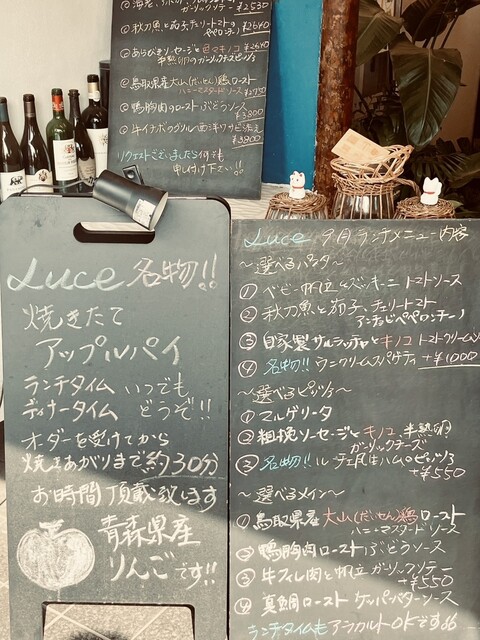 ガーリックソテー ¥2530
秋刀魚と茄子チェリートマトの
ペペロンチーノ ¥2640
あらびきソーセージと キノコ ¥2640
半熟卵のガーリックチーズピッツァ
鳥取県産大山(だいせん)鶏ロースト
ハニーマスタードソース
鴨胸肉のロースト ぶどうソース
¥3800
牛イチボのグリル 西洋ワサビ添え
¥3800
リクエストございましたら何でも
申し付け下さい!!
Luce 名物!!
焼きたて
アップルパイ
ランチタイム いつでも
ディナータイム どうぞ!!
オーダーを受けてから
焼きあがりまで約30分
お時間頂戴致します
青森県産
りんごです!!
Luce 9月ランチメニュー内容
〜選べるパスタ〜
① ベビー帆立とズッキーニ トマトソース
② 秋刀魚と茄子、チェリートマト
アンチョビペペロンチーノ
③ 自家製サルシッチャとキノコ トマトクリームソース
④ 名物!! ウニクリームスパゲティ +¥1000
〜選べるピッツァ〜
① マルゲリータ
② 粗挽ソーセージとキノコ 半熟卵
ガーリックチーズ
③ 名物!! ルーチェ風生ハムのピッツァ
+¥550
〜選べるメイン〜
① 鳥取県産 大山(だいせん)鶏 ロースト
ハニーマスタードソース
② 鴨胸肉ロースト ぶどうソース
③ 牛フィレ肉と帆立 ガーリックソテー
+¥550
④ 真鯛ロースト ケッパーバターソース
ランチタイムも アラカルトOKですので